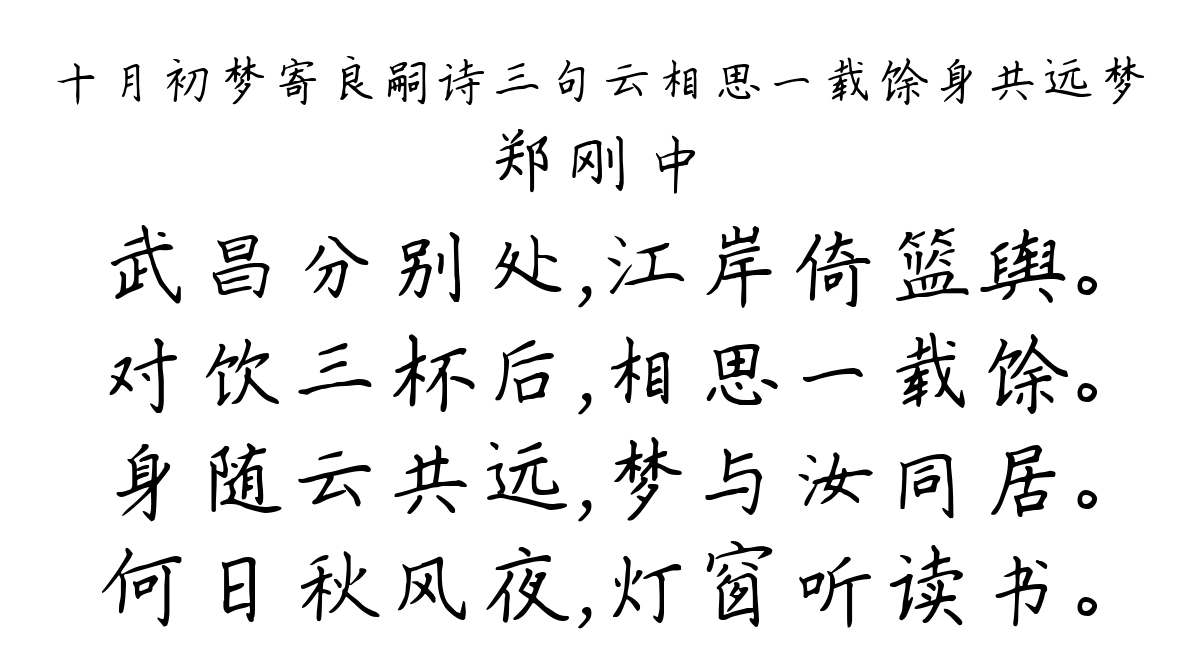 十月初梦寄良嗣诗三句云相思一载馀身共远梦
郑刚中
武昌分别处,江岸倚篮舆。
对饮三杯后,相思一载馀。
身随云共远,梦与汝同居。
何日秋风夜,灯窗听读书。